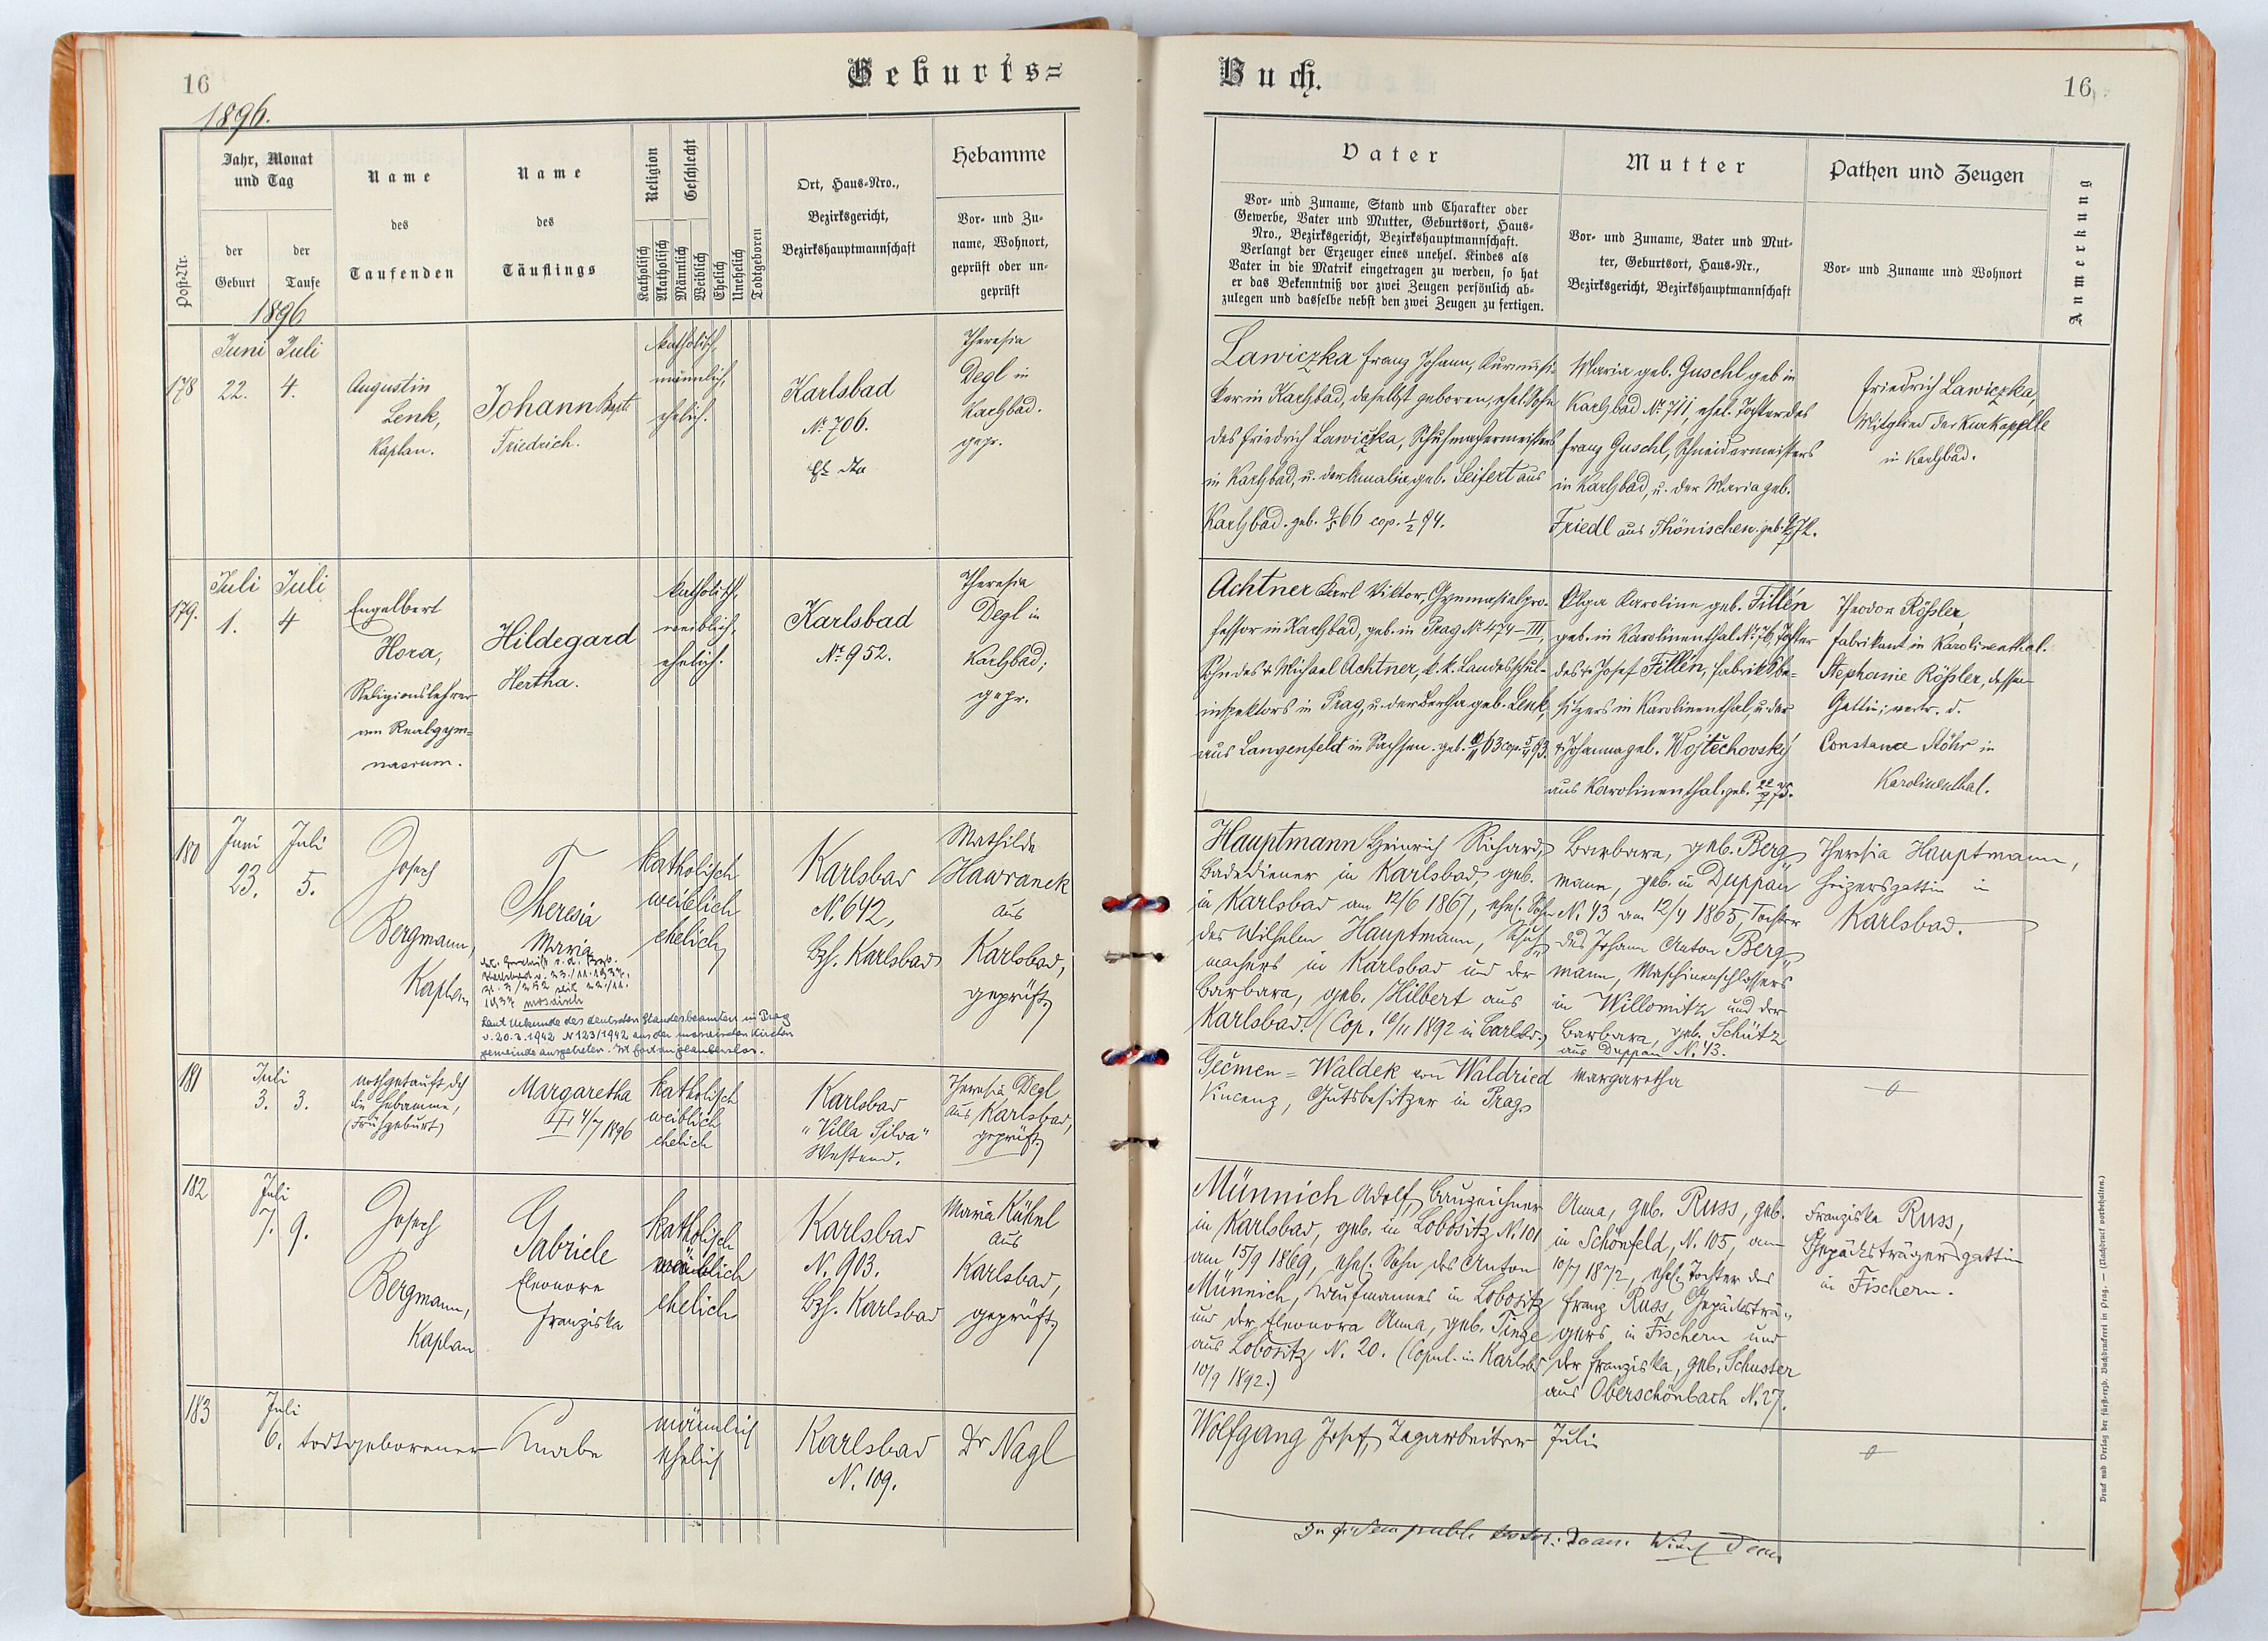 16
Geburts=
1896.
Post-Nr.
Jahr, Monat
und Tag
der
Geburt
der
Taufe
1896
Name
des
Taufenden
Name
des
Täuflings
Religion
Geschlecht
Katholisch
Akatholisch
Männlich
Weiblich
Ehelich
Unehelich
Todtgeboren
Ort, Haus-Nro.,
Bezirksgericht,
Bezirkshauptmannschaft
Hebamme
Vor- und Zu-
name, Wohnort,
geprüft oder un-
geprüft
178
Juni Juli
22. 4.
Augustin
Lenk,
Kaplan.
Johann Bapt.
Friedrich.
katholisch,
männlich,
ehelich.
Karlsbad
No 706.
Theresia
Degl in
Karlsbad.
gepr.
179.
Juli Juli
1. 4
Engelbert
Hora,
Religionslehrer
am Realgym=
nasium.
Hildegard
Hertha.
katholisch,
weiblich,
ehelich.
Karlsbad
Nr. 952.
Theresia
Degl in
Karlsbad;
gepr.
180
Juni Juli
23. 5.
Joseph
Bergmann,
Kaplan
Theresia
Maria
1937 mosaisch
Laut Urkunde des deutschen Standesbeamten in Prag
v. 20.3.1942 N 123/1942 aus der mosaischen Kirchen
gemeinde ausgetreten. Ist fortan glaubenslos.
katholisch
weiblich
ehelich
Karlsbad
N. 642,
Bzh. Karlsbad
Mathilde
Hawranek
aus
Karlsbad,
geprüft
181
Juli
3. 3.
nothgetauft dch
die Hebamme,
(Frühgeburt)
Margaretha
4/7 1896
katholisch
weiblich
ehelich
Karlsbad
"Villa Silva"
Westend.
Theresia Degl
aus Karlsbad,
geprüft
182
Juli
7. 9.
Joseph
Bergmann,
Kaplan
Gabriele
Eleonore
Franziska
katholisch
weiblich
ehelich
Karlsbad
N. 903.
Bzh. Karlsbad
Maria Kühnl
aus
Karlsbad,
geprüft
183
Juli
6. todtgeborener Knabe
männlich
ehelich
Karlsbad
N. 109.
Dr Nagl
Buch.
16
Vater
Vor- und Zuname, Stand und Charakter oder
Gewerbe, Vater und Mutter, Geburtsort, Haus-
Nro., Bezirksgericht, Bezirkshauptmannschaft.
Verlangt der Erzeuger eines unehel. Kindes als
Vater in die Matrik eingetragen zu werden, so hat
er das Bekenntniß vor zwei Zeugen persönlich ab-
zulegen und dasselbe nebst den zwei Zeugen zu fertigen.
Mutter
Vor- und Zuname, Vater und Mut-
ter, Geburtsort, Haus-Nr.,
Bezirksgericht, Bezirkshauptmannschaft
Pathen und Zeugen
Vor- und Zuname und Wohnort
Anmerkung
Lawiczka Franz Johann, Kurmusi-
ker in Karlsbad, daselbst geboren, ehel. Sohn
des Friedrich Lawiczka, Schuhmachermeisters
in Karlsbad, u. der Amalia geb. Seifert aus
Karlsbad. geb. 9/5 66 cop. 1/2 94.
Maria geb. Guschl geb in
Karlsbad No 711, ehel. Tochter des
Franz Guschl, Schneidermeisters
in Karlsbad, u. der Maria geb.
Friedl aus Thönischen.
Friedrich Lawiczka,
Mitglied der Kurkapelle
in Karlsbad.
Achtner Karl Viktor, Gymnasialpro-
fessor in Karlsbad, geb. in Prag No 474-III,
Sohn des + Michael Achtner, k. k. Landesschul-
inspektors in Prag, u. der Bertha geb. Lenk,
aus Langenfeld in Sachsen.
Olga Karoline geb. Fillén
geb. in Karolinenthal No 76, Tochter
des + Josef Fillén, Fabriksbe=
sitzers in Karolinenthal, u. der
+ Johanna geb. Wojtěchovský
aus Karolinenthal. geb. 22/7 75.
Theodor Rößler,
Fabrikant in Karolinenthal.
Stephanie Rößler, dessen
Gattin; vertr. d.
Constance Stöhr in
Karolinenthal.
Hauptmann Heinrich Richard,
Badediener in Karlsbad, geb.
in Karlsbad am 12/6 1867, ehel. Sohn
des Wilhelm Hauptmann, Schuh
machers in Karlsbad und der
Barbara, geb. Hilbert aus
Karlsbad. (Cop. 10/11 1892 in Carlsb.)
Barbara, geb. Berg
mann, geb. in Duppau
N. 43 am 12/4 1865, Tochter
des Johann Anton Berg
mann, Maschinenschlossers
in Willomitz und der
Barbara, geb. Schütz
aus Duppau N. 43.
Theresia Hauptmann,
Heizersgattin in
Karlsbad.
Ječmen = Waldek von Waldried
Vincenz, Gutsbesitzer in Prag
Margaretha
Münnich Adolf, Bauzeichner
in Karlsbad, geb. in Lobositz N. 101
am 15/9 1869, ehel. Sohn des Anton
Münnich, Kaufmannes in Lobositz
und der Eleonora Anna, geb. Tinze
aus Lobositz N. 20. (Copul. in Karlsbd
10/9 1892.)
Anna, geb. Russ, geb.
in Schönfeld, N. 105, am
10/7 1872, ehel. Tochter des
Franz Russ, Gepäcksträ-
gers in Fischern und
der Franziska, geb. Schuster
aus Oberschönbach N. 27.
Franziska Russ,
Gepäcksträgersgattin
in Fischern.
Wolfgang Josef, Tagarbeiter
Julie
Druck und Verlag der fürst-erzb. Buchdruckerei in Prag. — (Nachdruck vorbehalten.)